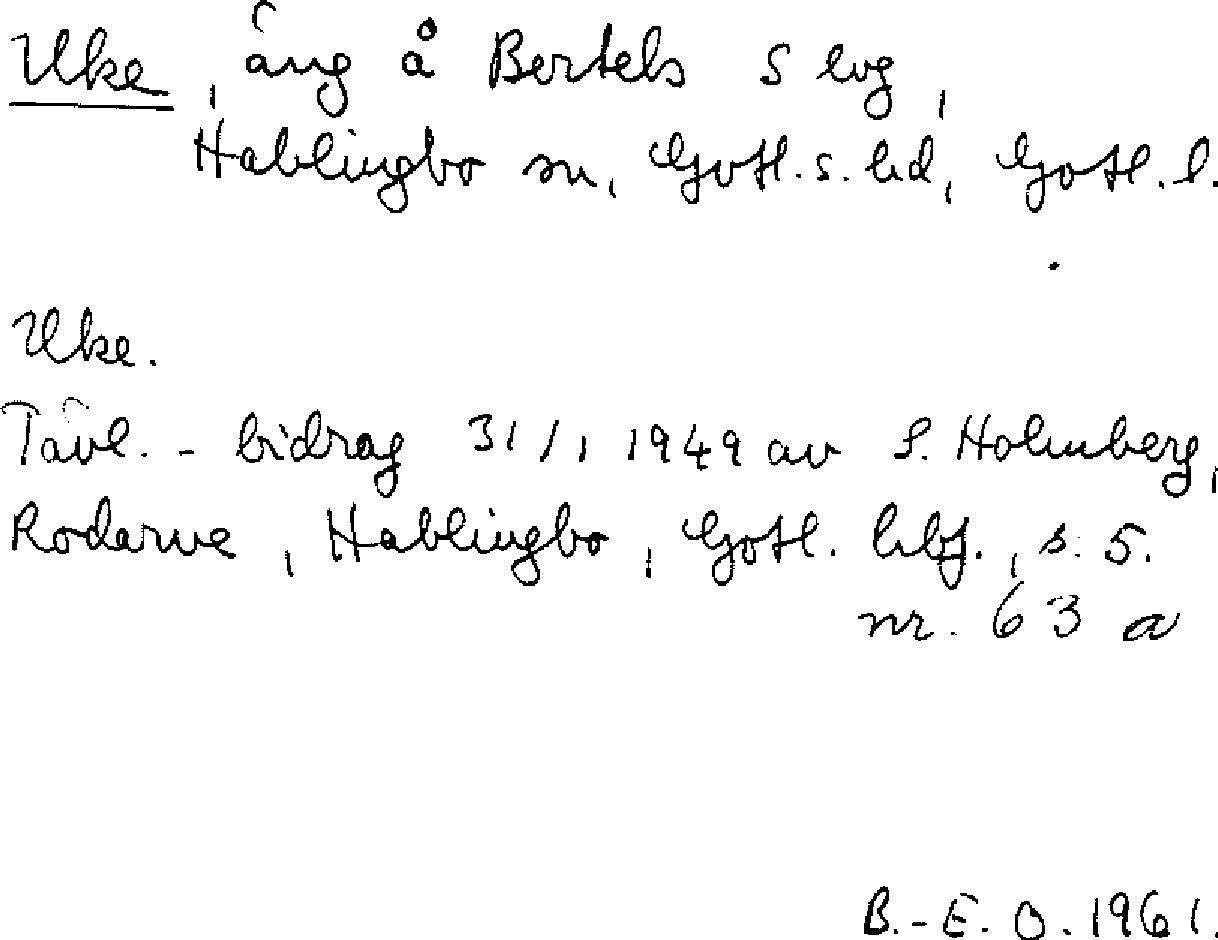 Uke, äng å Bertels S lvg,
Hablingbo sn, Gotl. s. hd, Gotl. l.
Uke.
Tävl. - bidrag 31/1 1949 av S. Holmberg,
Rodarve, Hablingbo, Gotl. hbf., s. 5.
nr. 63 a
B.-E. O. 1961.